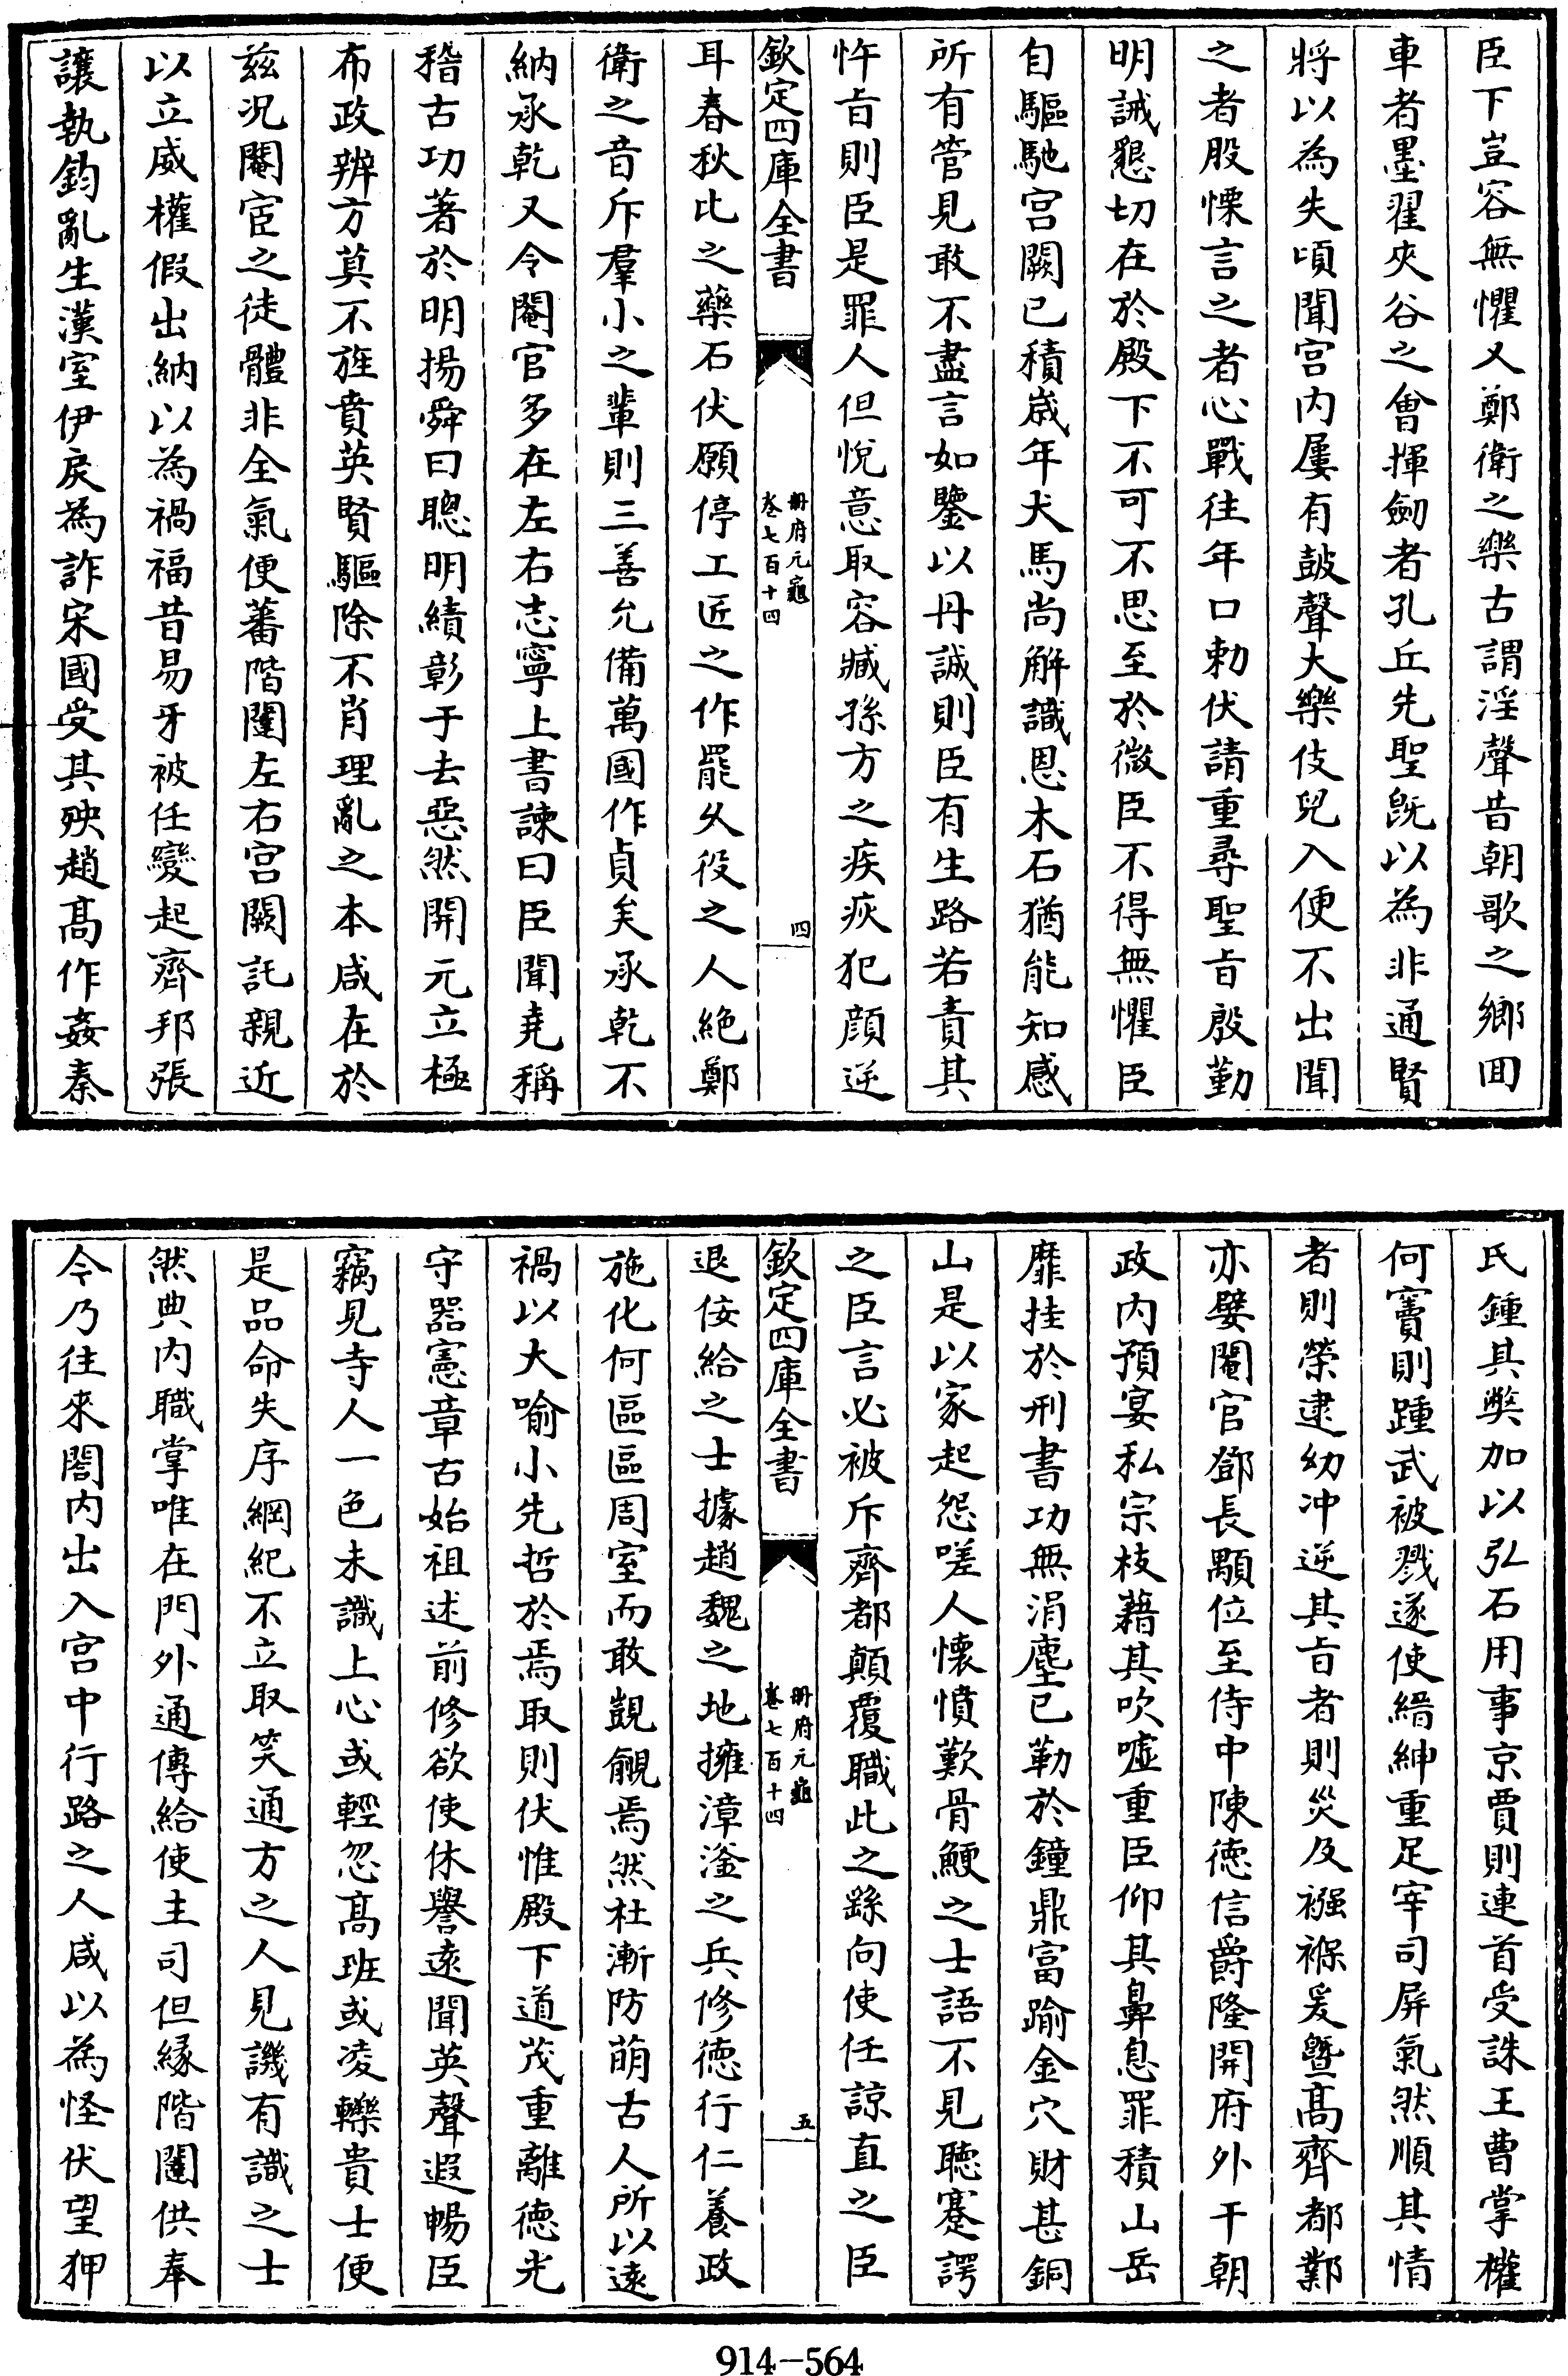 臣下豈容無懼又鄭衛之樂古謂淫聲昔朝歌之鄉回
車者墨翟夾谷之會揮劒者孔丘先聖旣以為非通賢
將以為失頃聞宫内屢有鼔聲大樂伎兒入便不出聞
之者股慄言之者心戰往年口勅伏請重尋聖㫖殷勤
明誡懇切在於殿下不可不思至於微臣不得無懼臣
自驅馳宫闕已積嵗年犬馬尚解識恩木石猶能知感
所有管見敢不盡言如鑒以丹誠則臣有生路若責其
忤㫖則臣是罪人但悅意取容臧孫方之疾疢犯顔逆
欽定四庫全書
册府元龜
卷七百十四
四
耳春秋比之藥石伏願停工匠之作罷久役之人絶鄭
衛之音斥羣小之輩則三善允備萬國作貞矣承乾不
納承乾又令閹官多在左右志寧上書諫曰臣聞堯稱
稽古功著於明揚舜曰聰明績彰于去惡然開元立極
布政辨方莫不旌賁英賢驅除不肖理亂之本咸在於
兹况閹宦之徒體非全氣便蕃階闥左右宫闕託親近
以立威權假出納以為禍福昔易牙被任變起齊邦張
讓執鈞亂生漢室伊戾為詐宋國受其殃趙髙作姦秦
氏鍾其弊加以弘石用事京賈則連首受誅王曹掌權
何竇則踵武被戮遂使縉紳重足宰司屏氣然順其情
者則榮逮幼冲逆其㫖者則災及襁褓爰暨髙齊都鄴
亦嬖閹官鄧長顒位至侍中陳徳信爵隆開府外干朝
政内預宴私宗枝藉其吹嘘重臣仰其鼻息罪積山岳
靡挂於刑書功無涓塵已勒於鐘鼎富踰金穴財甚銅
山是以家起怨嗟人懷憤歎骨鯁之士語不見聽蹇諤
之臣言必被斥齊都顛覆職此之繇向使任諒直之臣
欽定四庫全書
册府元龜
卷七百十四
五
退佞給之士據趙魏之地擁漳滏之兵修徳行仁養政
施化何區區周室而敢覬覦焉然杜漸防萌古人所以逺
禍以大喻小先哲於焉取則伏惟殿下道茂重離徳光
守器憲章古始祖述前修欲使休譽逺聞英聲遐暢臣
竊見寺人一色未識上心或輕忽髙班或凌轢貴士便
是品命失序綱紀不立取笑通方之人見譏有識之士
然典内職掌唯在門外通傳給使主司但縁階闥供奉
今乃往來閤内出入宫中行路之人咸以為怪伏望狎
914-564